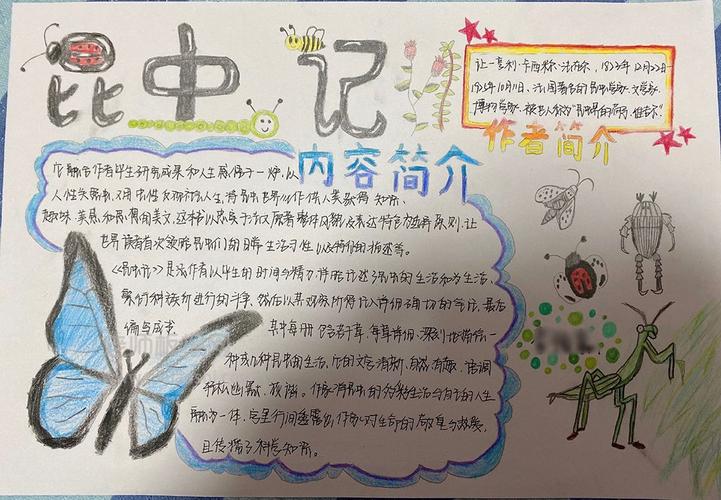 昆虫记
让-亨利·卡西米尔·法布尔,1823年12月22日-
1915年10月11日,法国著名的昆虫学家、文学家、
博物学家,被世人称为"昆虫界的荷马、维吉尔"
作者简介
内容简介
它融合作者毕生研究成果和人生感悟于一炉,以
人性关照虫性,又用虫性反观社会人生,将昆虫世界化作供人类获得知识、
趣味、美感和思想的美文,这本书以忠实于法文原著整体风貌及表达特色为选择原则,让
世界读者首次领略昆虫们的日常生活习性以及特征的描述等。
《昆虫记》是该作者以毕生的时间与精力详细论述了昆虫的生活和为生活、
繁衍种族所进行的斗争,然后以其观察所得记入详细确切的笔记,最后
编写成书
其中每册包含若干章,每章详细、深刻地描绘一
种或几种昆虫的生活,它的文字清新、自然有趣、语调
轻松幽默、诙谐。作者将昆虫的多彩生活与自己的人生
融为一体,字里行间透露出作者对生命的敬畏与热爱,
且传播了科学知识。